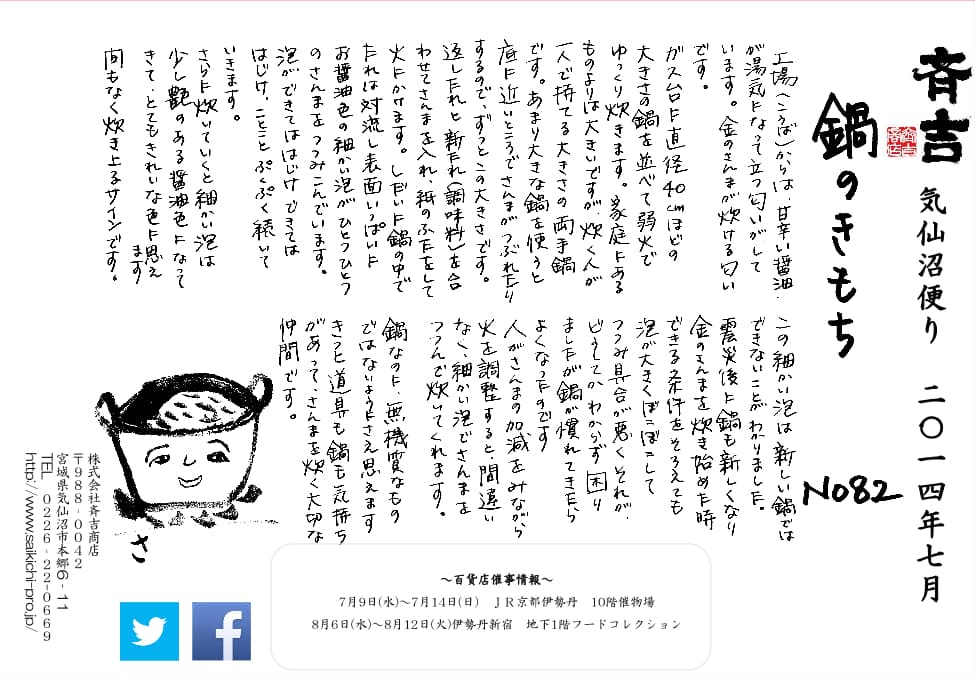 斉吉
気仙沼便り 二〇一四年七月
鍋のきもち
No82
工場(こうば)からは、甘辛い醤油
が湯気になって立つ匂いがして
います。金のさんまが炊ける匂い
です。
ガス台に直径40cmほどの
大きさの鍋を並べて弱火で
ゆっくり炊きます。家庭にある
ものよりは大きいですが、炊く人が
一人で持てる大きさの両手鍋
です。あまり大きな鍋を使うと
底に近いところでさんまがつぶれたり
するので、ずっとこの大きさです。
返したれと新たれ(調味料)を合
わせてさんまを入れ、紙のふたをして
火にかけます。しだいに鍋の中で
たれは対流し表面いっぱいに
お醤油色の細かい泡がひとつひとつ
のさんまをつつみこんでいます。
泡ができてははじけ、できては
はじけ、ことことぷくぷく続いて
いきます。
さらに炊いていくと細かい泡は
少し艶のある醤油色になって
きて、とてもきれいな色に思え
ます
間もなく炊き上るサインです。
この細かい泡は新しい鍋では
できないことがわかりました。
震災後に鍋も新しくなり
金のさんまを炊き始めた時
できる条件をそろえても
泡が大きくぼこぼこして
つつみ具合が悪くそれが、
どうしてかわからず困り
ましたが鍋が慣れてきたら
よくなったのです
人がさんまの加減をみながら
火を調整すると、間違い
なく、細かい泡でさんまを
つつんで炊いてくれます。
鍋なのに、無機質なもの
ではないようにさえ思えます
きっと道具も鍋も気持ち
があって、さんまを炊く大切な
仲間です。
さ
株式会社斉吉商店
〒988-0042
宮城県気仙沼市本郷6-11
TEL 0226-22-0669
http://www.saikichi-pro.jp/
～百貨店催事情報～
7月9日(水)～7月14日(日) JR京都伊勢丹 10階催物場
8月6日(水)～8月12日(火)伊勢丹新宿 地下1階フードコレクション